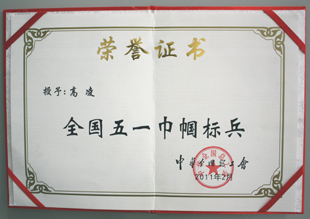 荣誉证书
授予:高 凌
全国五一巾帼标兵
中华全国总工会
2011年2月